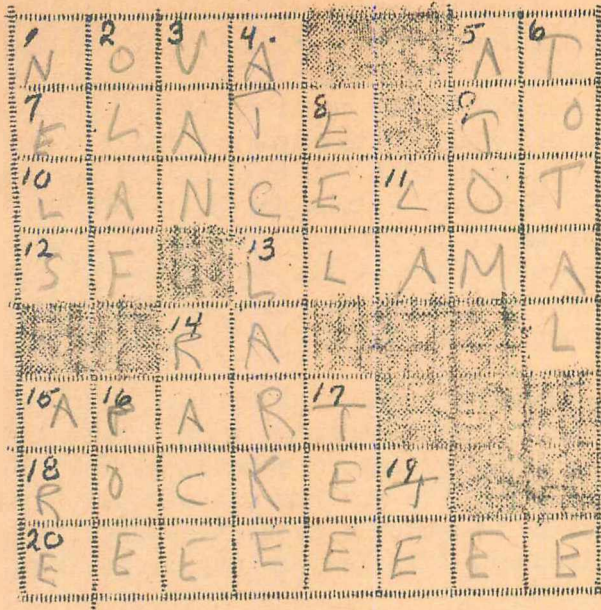 1 N 2 O 3 V 4 A 5 A 6 T
7 E L A T 8 E 9 T O
10 L A N C E 11 L O T
12 S F 13 L L A M A
14 R A L
15 A 16 P A R 17 T
18 R O C K E 19 T
20 E E E E E E E E